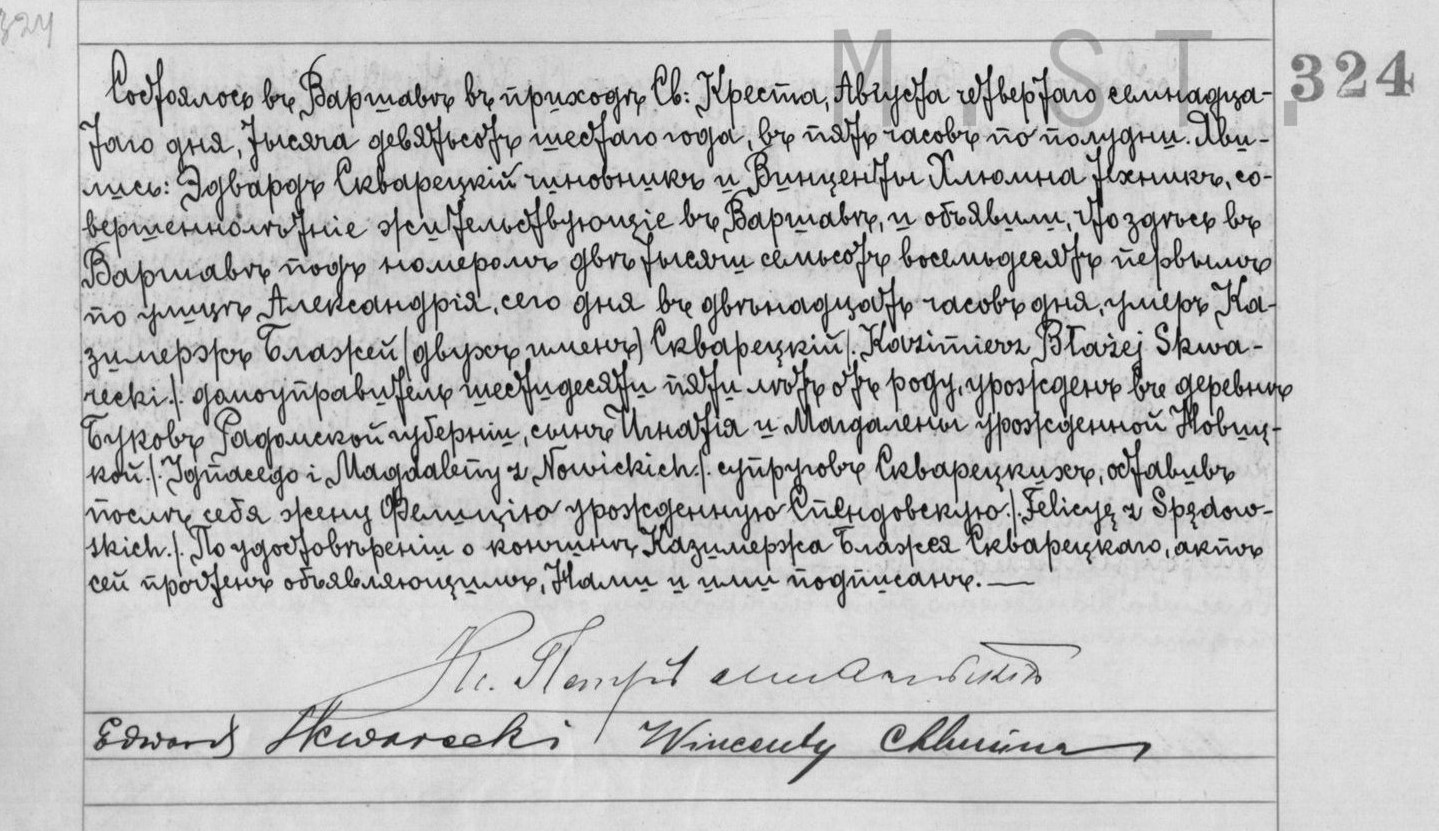 324
M. S T.
324
Состоялось въ Варшавѣ въ приходѣ Св: Креста, Августа четвертаго семнадца-
таго дня, тысяча девятьсотъ шестаго года, въ пять часовъ по полудни. Яви-
лись: Эдвардъ Скварецкій чиновникъ и Винценты Хлюмна техникъ, со-
вершеннолѣтніе жительствующіе въ Варшавѣ, и объявили, что здѣсь въ
Варшавѣ подъ номеромъ двѣ тысячи семьсотъ восемьдесятъ первымъ
по улицѣ Александрія, сего дня въ двѣнадцать часовъ дня, умеръ Ка-
зимержъ Блажей (двухъ именъ) Скварецкій /. Kazimierz Błażej Skwa-
recki ./. домоуправитель шестидесяти пяти лѣтъ отъ роду, урожденъ въ деревнѣ
Буковъ Радомской губерніи, сынъ Игнатія и Магдалены урожденной Новиц-
кой ./. Ignacego i Magdaleny z Nowickich ./. супруговъ Скварецкихъ, оставивъ
послѣ себя жену Фелицію урожденную Спендовскую ./. Felicyę z Spędow-
skich ./. По удостовѣреніи о кончинѣ Казимержа Блажея Скварецкаго, актъ
сей прочтенъ объявляющимъ, Нами и ими подписанъ. —
Кс. Петръ
Edward Skwarecki Wincenty Chlumna